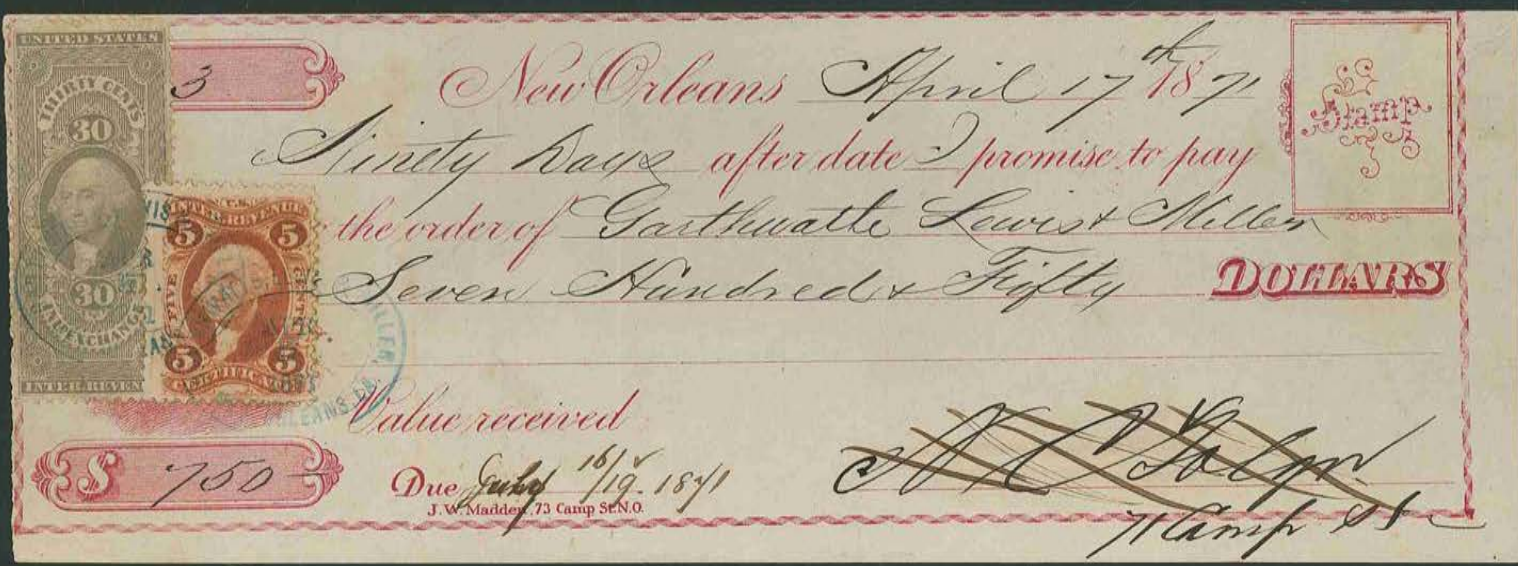 UNITED STATES
THIRTY CENTS
30
30
INL. EXCHANGE
INTER. REVEN
U.S.
INTER. REVENUE
5 5
FIVE CENTS
5 5
CERTIFICATE
3
New Orleans April 17th 1871
Stamp
Ninety Days after date I promise to pay
the order of Garthwaite Lewis & Miller
Seven Hundred & Fifty DOLLARS
Value received
$ 750
Due July 16/19 1871
J.W. Madden, 73 Camp St. N.O.
71 Camp St